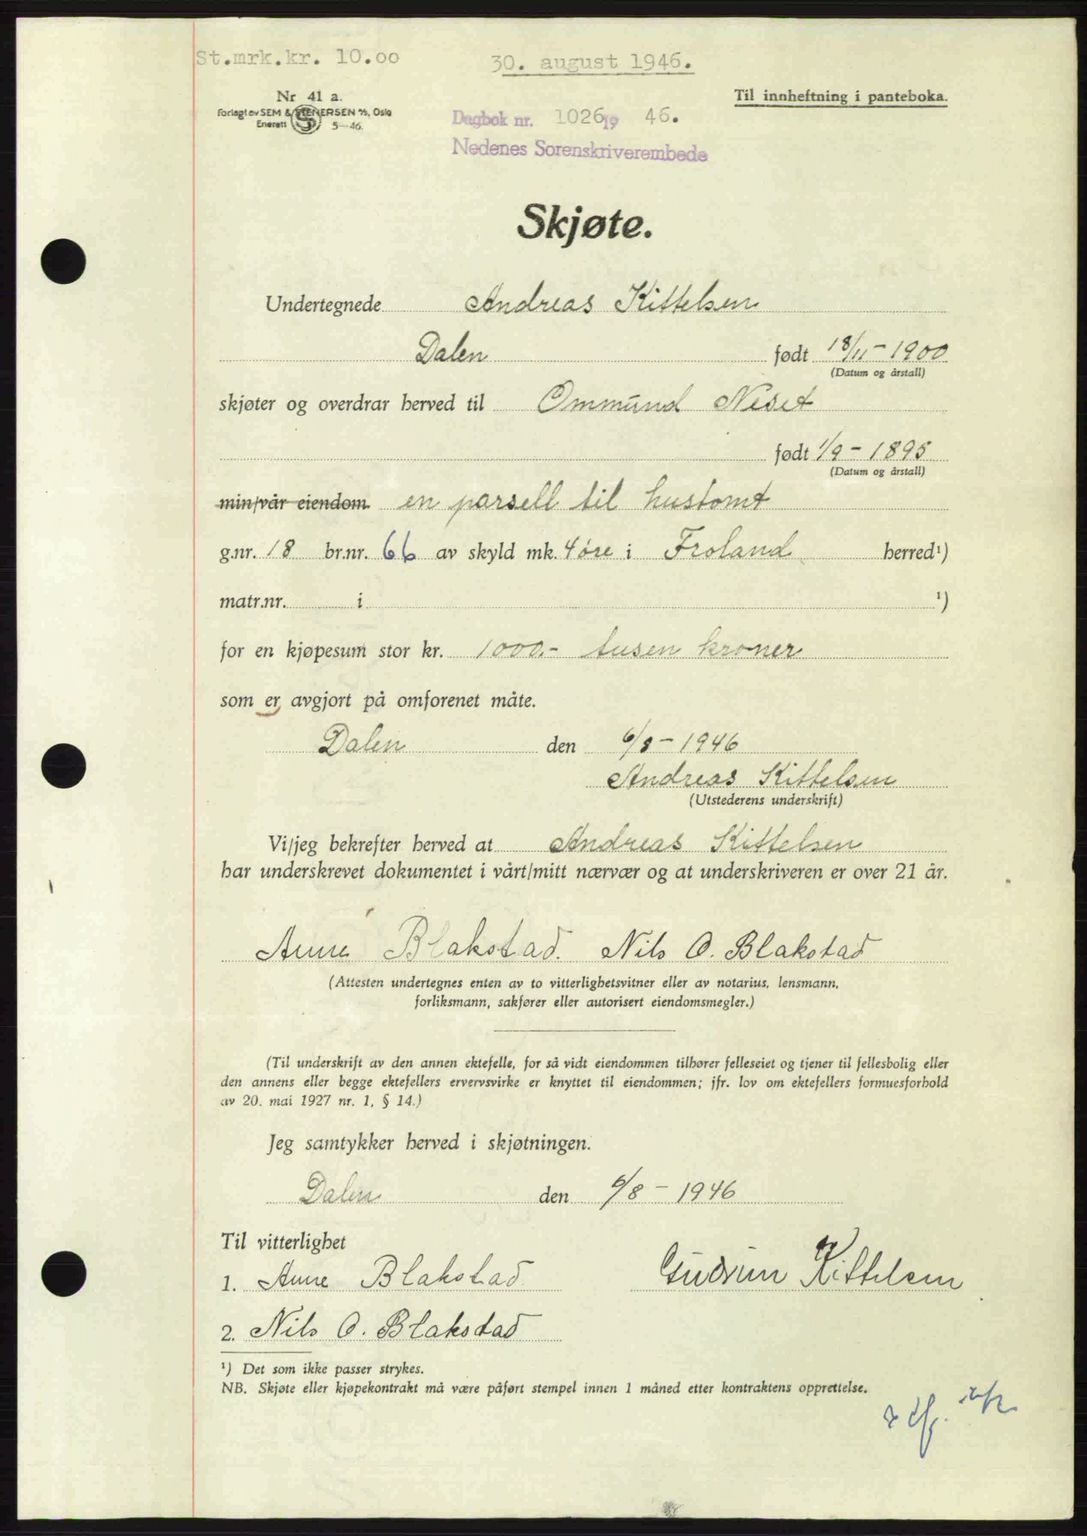 St.mrk.kr. 10.00
30. august 1946.
Nr 41 a.
Forlagt av SEM & STENERSEN A/S, Oslo
Enerett S 5—46.
Til innheftning i panteboka.
Dagbok nr. 1026 19 46.
Nedenes Sorenskriverembede
Skjøte.
Undertegnede Andreas Kittelsen
Dalen født 18/11-1900
(Datum og årstall)
skjøter og overdrar herved til Ommund Neset
født 1/9-1895
(Datum og årstall)
min/vår eiendom en parsell til hustomt
g.nr. 18 br.nr. 66 av skyld mk. 4 øre i Froland herred¹)
matr.nr. i ¹)
for en kjøpesum stor kr. 1000.- tusen kroner
som er avgjort på omforenet måte.
Dalen den 6/8-1946
Andreas Kittelsen
(Utstederens underskrift)
Vi/jeg bekrefter herved at Andreas Kittelsen
har underskrevet dokumentet i vårt/mitt nærvær og at underskriveren er over 21 år.
Anne Blakstad. Nils O. Blakstad
(Attesten undertegnes enten av to vitterlighetsvitner eller av notarius, lensmann,
forliksmann, sakfører eller autorisert eiendomsmegler.)
(Til underskrift av den annen ektefelle, for så vidt eiendommen tilhører felleseiet og tjener til fellesbolig eller
den annens eller begge ektefellers ervervsvirke er knyttet til eiendommen; jfr. lov om ektefellers formuesforhold
av 20. mai 1927 nr. 1, § 14.)
Jeg samtykker herved i skjøtningen.
Dalen den 6/8-1946
Til vitterlighet
1. Anne Blakstad Gudrun Kittelsen
2. Nils O. Blakstad
¹) Det som ikke passer strykes.
NB. Skjøte eller kjøpekontrakt må være påført stempel innen 1 måned etter kontraktens opprettelse.